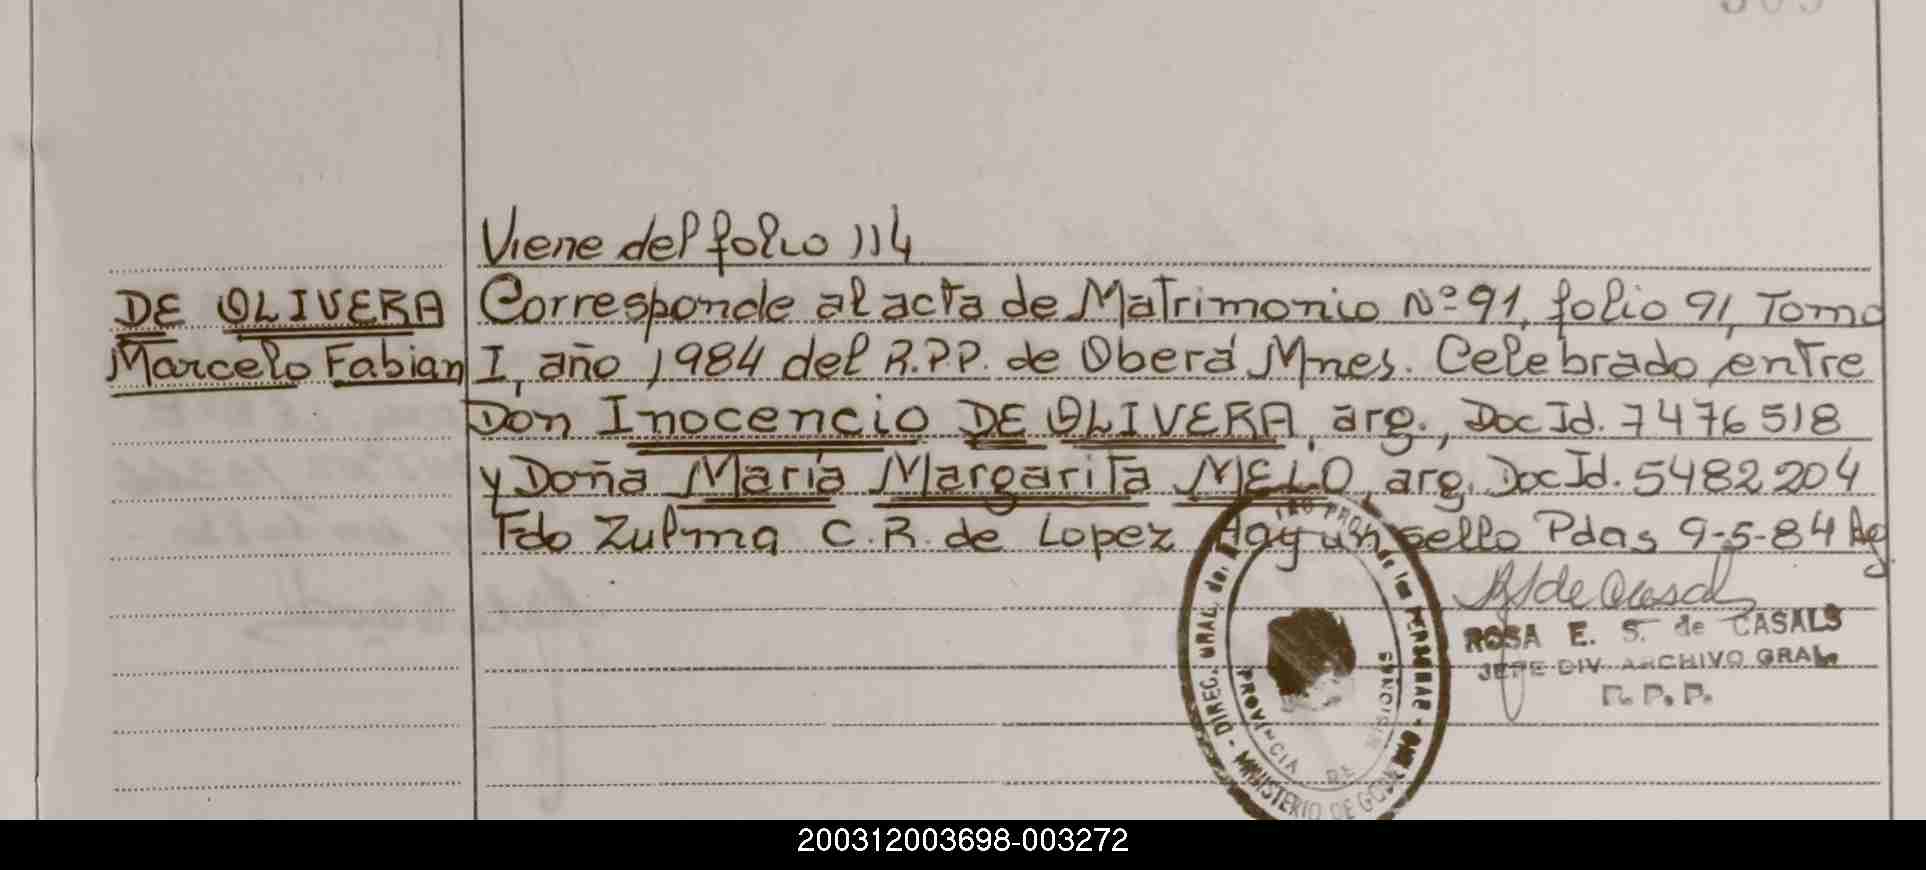 Viene del folio 114
DE OLIVERA
Marcelo Fabian
Corresponde al acta de Matrimonio Nº 91, folio 91, Tomo
I, año 1984 del R.P.P. de Oberá Mnes. Celebrado entre
Don Inocencio DE OLIVERA, arg., Doc Id. 7476518
y Doña María Margarita MELO, arg. Doc Id. 5482204
Fdo Zulma C. R. de Lopez Hay un sello Pdas 9-5-84
ROSA E. S. de CASALS
JEFE DIV. ARCHIVO GRAL.
R. P. P.
DIREC. GRAL. del PROV. de las PERSONAS - MINISTERIO DE
PROVINCIA DE MISIONES
200312003698-003272